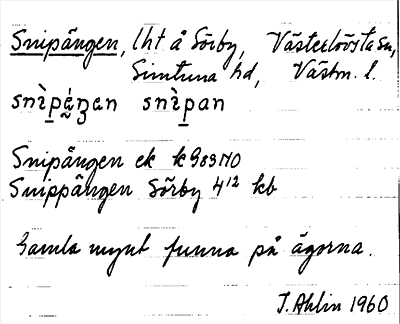 Snipängen, lht å Sörby, Västerlövsta sn,
Simtuna hd, Västm. l.
snìpáŋan snìpan
Snipängen ek k G83NO
Snippängen Sörby 4¹² kb
Gamla mynt funna på ägorna.
J. Ahlin 1960